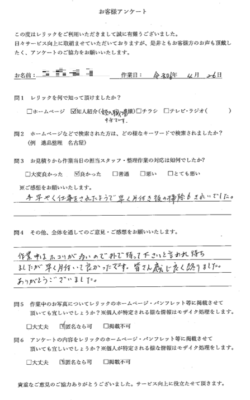 お客様アンケート
この度はレリックをご利用いただきまして誠に有難うございました。
日々サービス向上に取組ませていただいておりますが、是非ともお客様方のお声も頂戴し
たく、アンケートのご協力をお願いいたします。
お名前: 作業日: 令和 年 4月 26日
問1 レリックを何で知って頂けましたか?
□ホームページ ☑知人紹介( ) □チラシ □テレビ・ラジオ( )
問2 ホームページなどで検索された方は、どの様なキーワードで検索されましたか?
(例 遺品整理 名古屋)
問3 お見積りから作業当日の担当スタッフ・整理作業の対応は如何でしたか?
□大変良かった ☑良かった □普通 □悪い □とても悪い
※ご感想をお願いいたします。
手早く仕事をされたようで早く片付き 掃除もきれいでした。
問4 その他、全体を通してのご意見・ご感想をお願いいたします。
作業中はホコリが多いので外で待って下さいと言われ待ち
ましたが早く片付いて良かったです。皆さん感じ良く終りました。
ありがとうございました。
問5 作業中のお写真についてレリックのホームページ・パンフレット等に掲載させて
頂いても宜しいでしょうか?※個人が特定される様な情報はモザイク処理をします。
□大丈夫 ☑匿名なら可 □掲載不可
問6 アンケートの内容をレリックのホームページ・パンフレット等に掲載させて
頂いても宜しいでしょうか?※個人が特定される様な情報はモザイク処理をします。
□大丈夫 ☑匿名なら可 □掲載不可
貴重なご意見のご協力ありがとうございました。サービス向上に役立たせて頂きます。